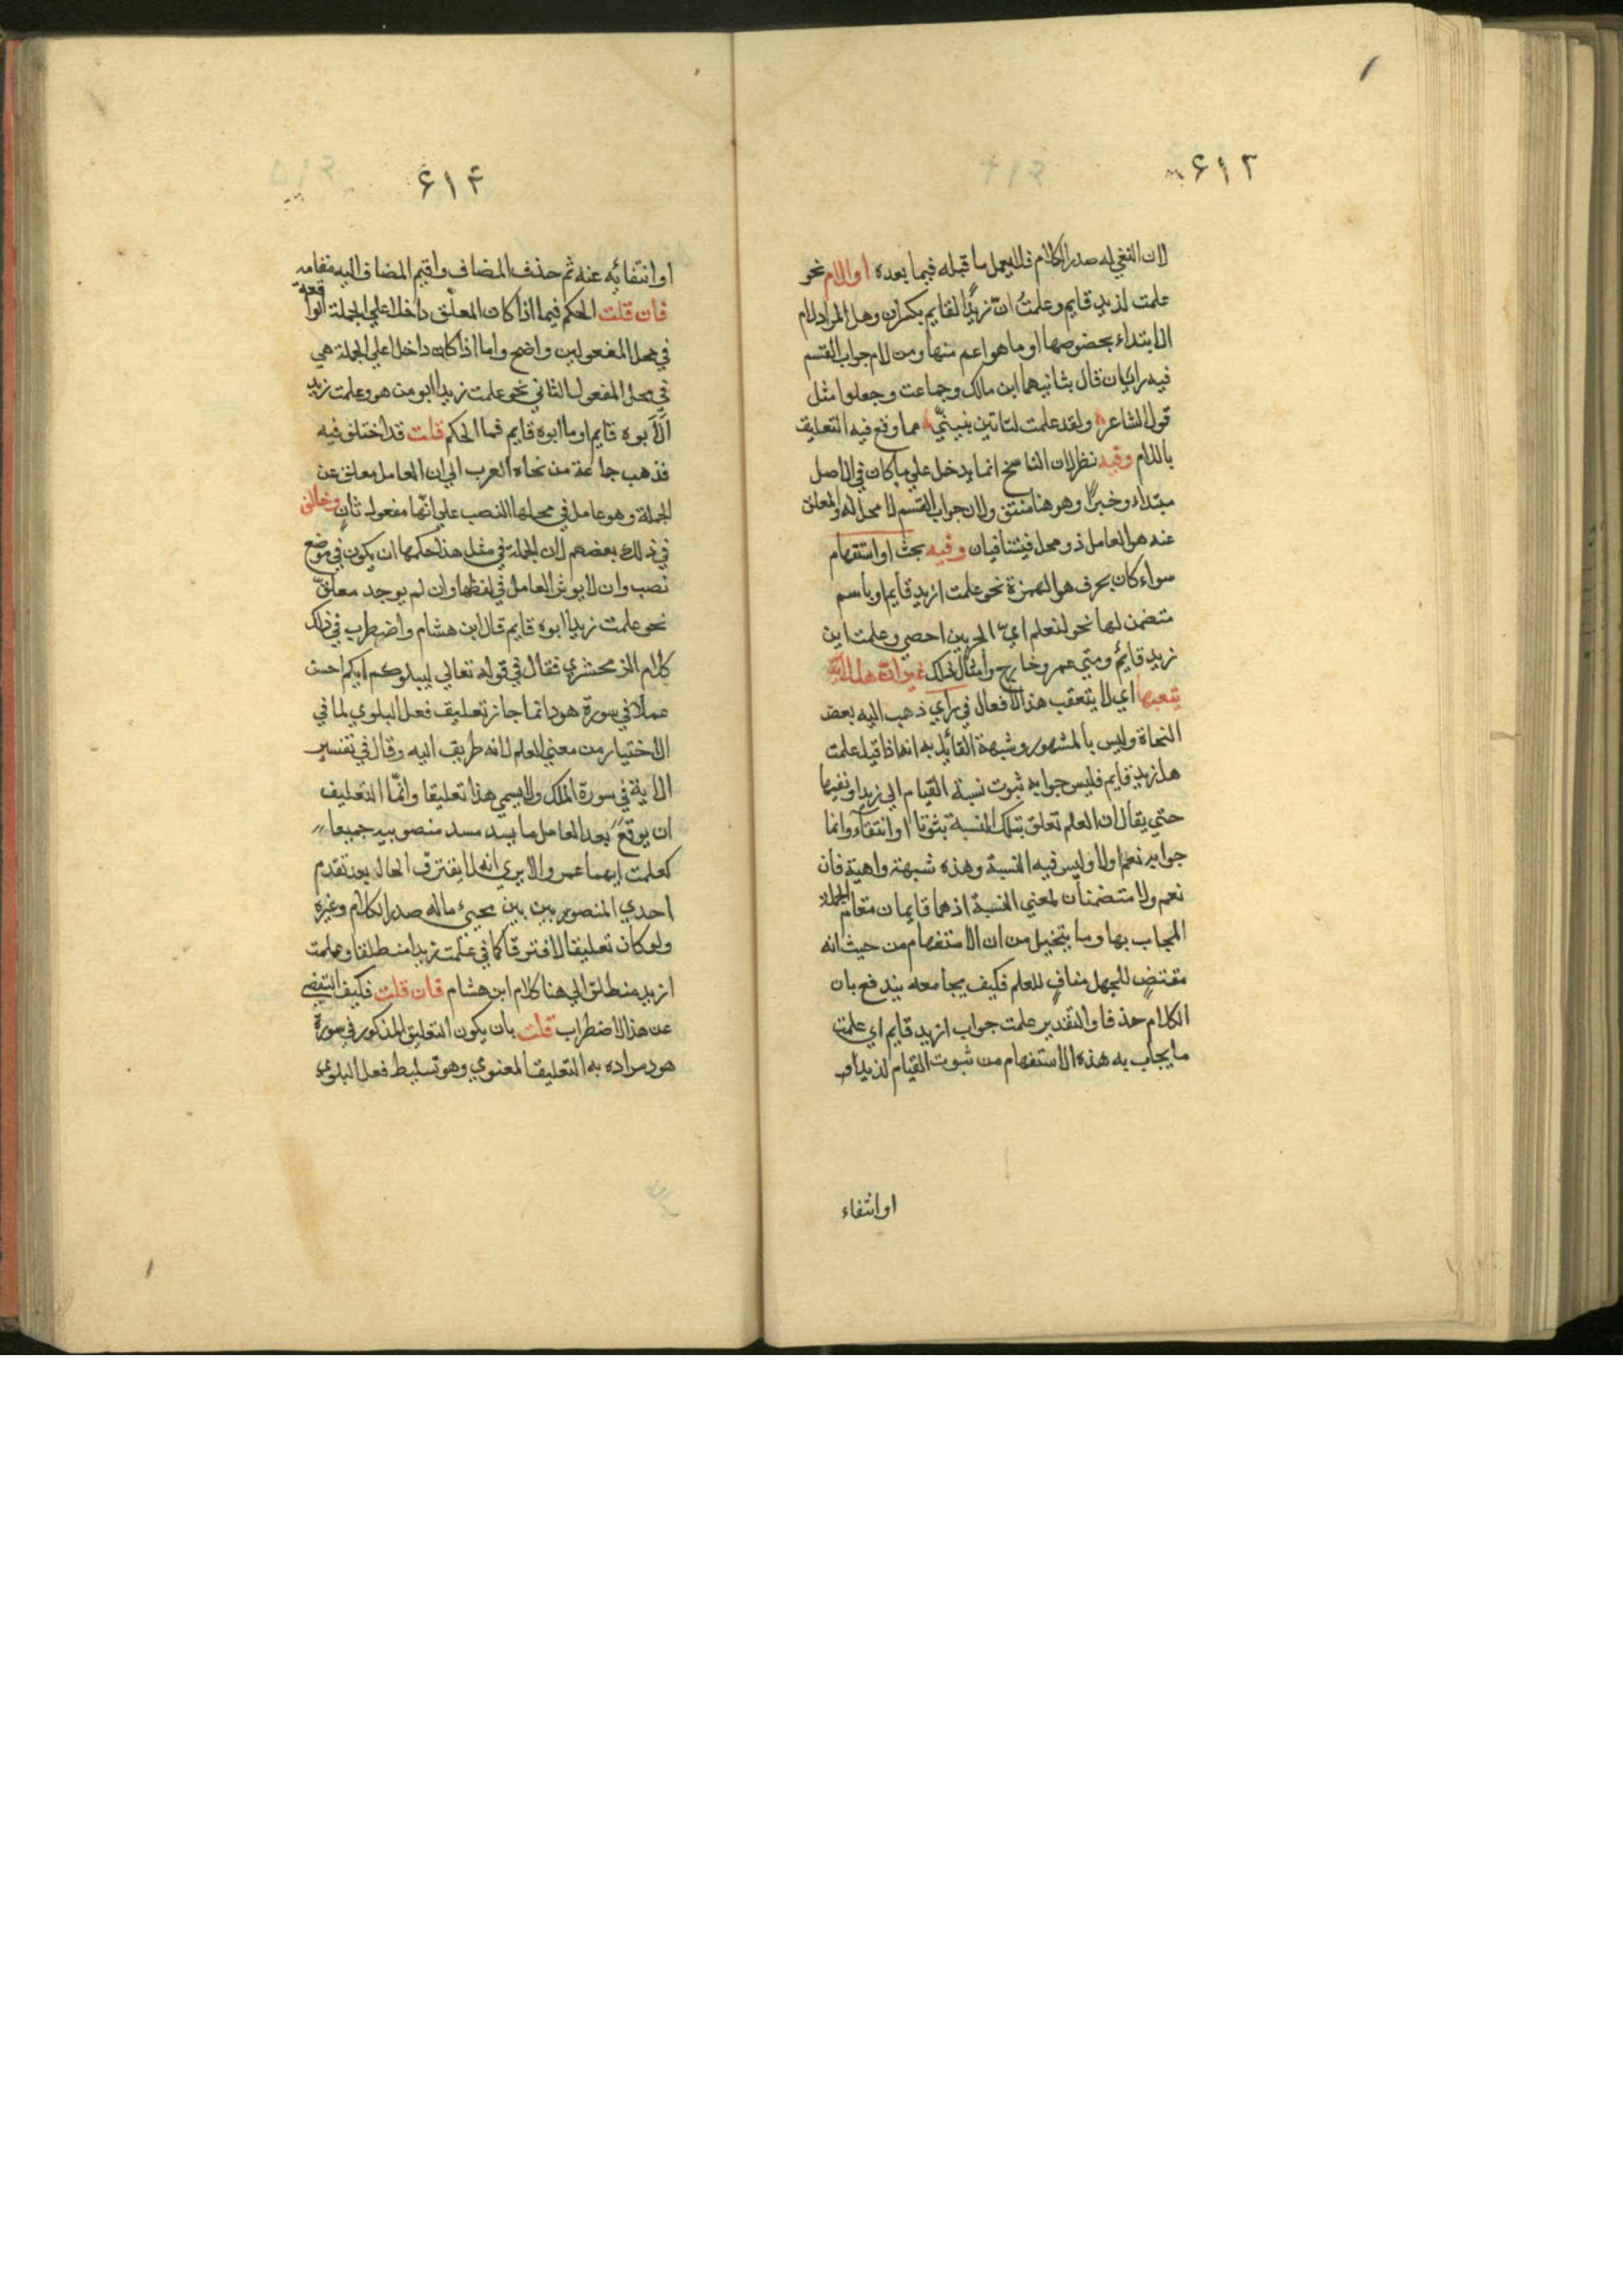 ۶۱۳
لان النفي له صدر الكلام فلا يعمل ما قبله فيما بعده او اللام نحو
علمت لزيد قايم وعلمتُ انّ زيدًا لقايم بكسران وهل المراد لام
الابتداء بخصوصها او ما هو اعم منها ومن لام جواب القسم
فيه رايان قال بثانيهما ابن مالك وجماعت وجعلوا مثل
قول الشاعر ولقد علمت لتاتين بنيتيّ مما وقع فيه التعليق
باللام وفيه نظر لان الناسخ انما يدخل علي ما كان في الاصل
مبتداء وخبرًا وهو هنا منتق ولان جواب القسم لا محل له والمعلق
عنه هو العامل ذو محل فيتنافيان وفيه بحث او استفهام
سواء كان بحرف هو الهمزة نحو علمت ازيد قايم او باسم
متضمن لها نحو لنعلم ايّ الحزبين احصي وعلمت اين
زيد قائم ومتي عمرو خارج وامثال ذلك غير انّ هل لا
يتعبها اي لا يتعقب هذا الافعال في راي ذهب اليه بعض
النحاة وليس بالمشهور وشبهة القائل به انه اذا قيل علمت
هل زيد قايم فليس جوابه ثبوت نسبة القيام الي زيد او نفيها
حتي يقال ان العلم تعلق بتلك النسبة بثوتا او انتفآء وانما
جوابه نعم اولا وليس فيه النسبة وهذه شبهة واهية فان
نعم ولا متضمنان لمعني النسبة اذ هما قايمان مقام الجملة
المجاب بها وما يتخيل من ان الاستفهام من حيث انه
مقتضٍ للجهل منافٍ للعلم فكيف يجامعه يندفع بان
الكلام حذفا والتقدير علمت جواب ازيد قايم اي علمت
ما يجاب به هذه الاستفهام من ثبوت القيام لزيد او
او انتفاء
۶۱۴
او انتفائه عنه ثم حذف المضاف واقيم المضاف اليه مقامه
فان قلت الحكم فيما اذا كان المعلق داخلا علي الجملة الواقعة
في محل المفعولين واضح واما اذا كان داخلا علي الجملة هي
في محل المفعول الثاني نحو علمت زيدا ابو من هو وعلمت زيد
الأبوه قايم او ما ابوه قايم فما الحكم قلت قد اختلف فيه
فذهب جاعة من نحاه العرب الي ان العامل معلق عن
الجملة وهو عامل في محلها النصب علي انّها مفعول ثانٍ وخالف
في ذلك بعضهم لان الجملة في مثل هذا حكمها ان يكون في موضع
نصب وان لا يوثر العامل في لفظها وان لم يوجد معلقّ
نحو علمت زيدا ابوه قايم قال ابن هشام واضطرب في ذلك
كلام الزمحشري فقال في قوله تعالي ليبلوكم ايكم احسن
عملا في سورة هود انما جاز تعليق فعل البلوي لما في
الاختيار من معني العلم لانه طريق اليه وقال في تفسير
الاية في سورة الملك ولا يسمي هذا تعليقا وانّما التعليق
ان يوقع بعد العامل ما يسد مسد منصوبيه جميعا
كعلمت ايهما عمرو الا يري انه لا يفترق الحال بعد تقدم
احدي المنصوبين بين مجيئ ماله صدر الكلام وغيره
ولو كان تعليقا لافترقا كما في علمت زيدا منطلقا وعلمت
ازيد منطلق الي هنا كلام ابن هشام فان قلت فكيف التفصي
عن هذا الاضطراب قلت بان يكون التعليق المذكور في سورة
هود مراده به التعليق المعنوي وهو تسليط فعل البلوي